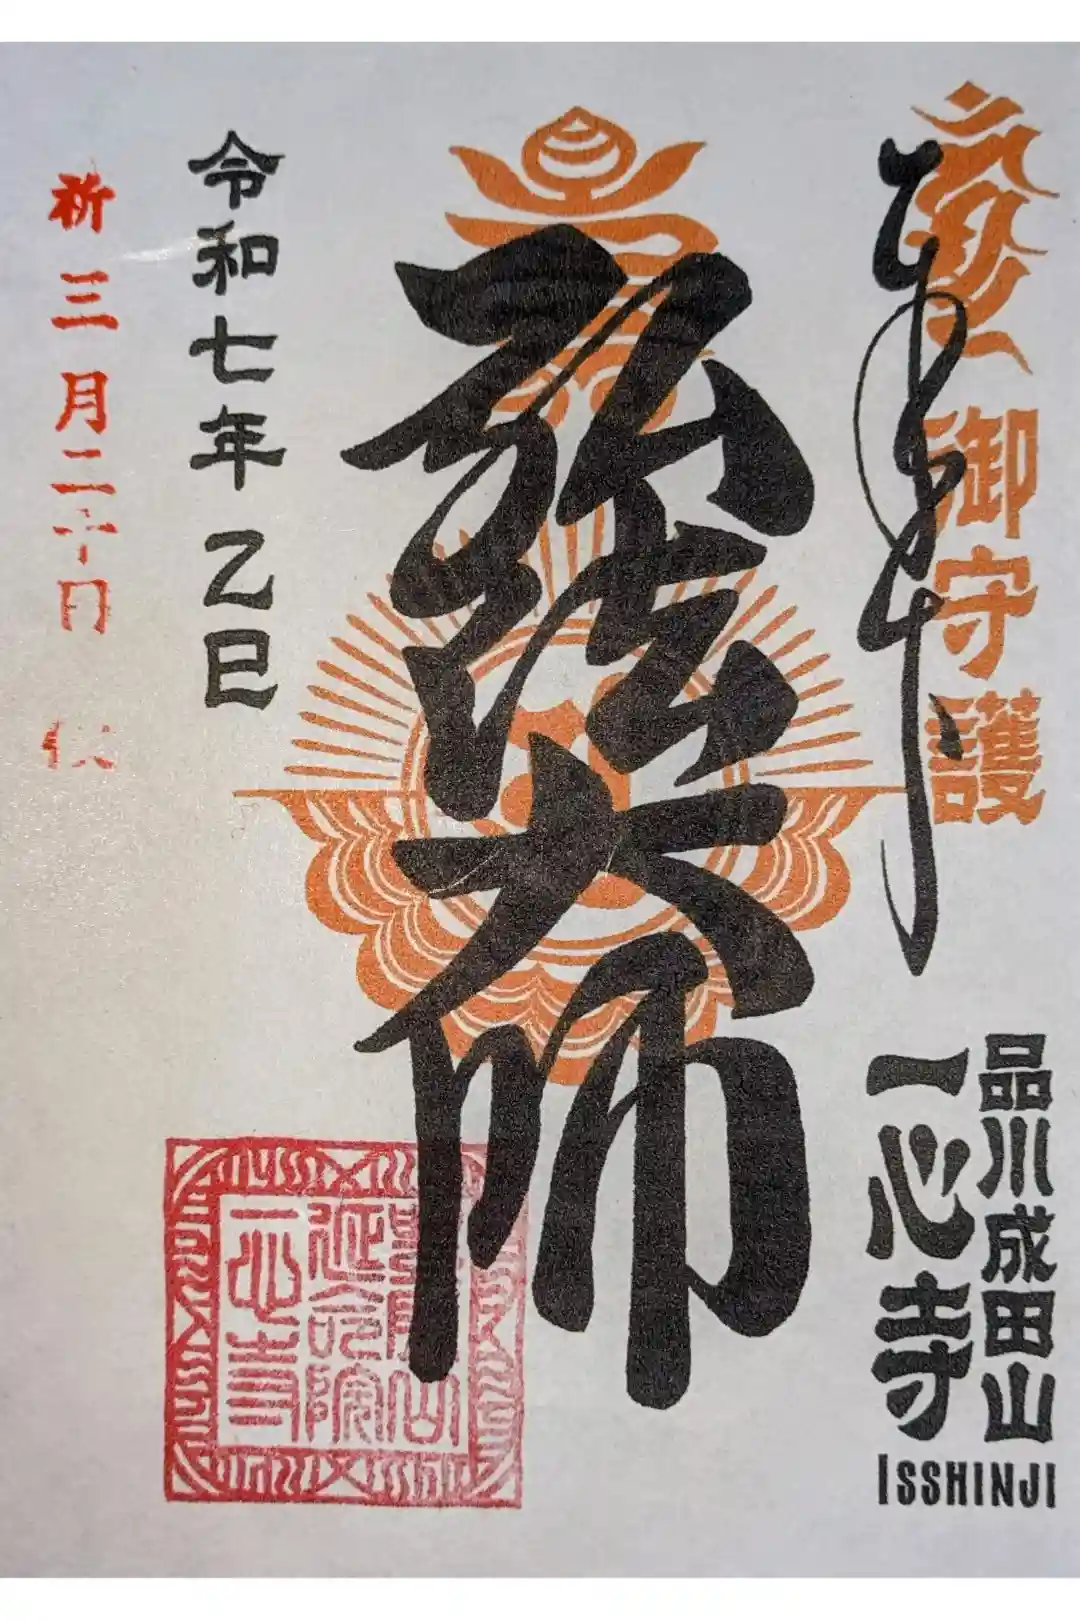 奉拝
御守護
品川成田山
一心寺
ISSHINJI
弘法大師
令和七年乙巳
祈三月二十日
延命院
一心寺